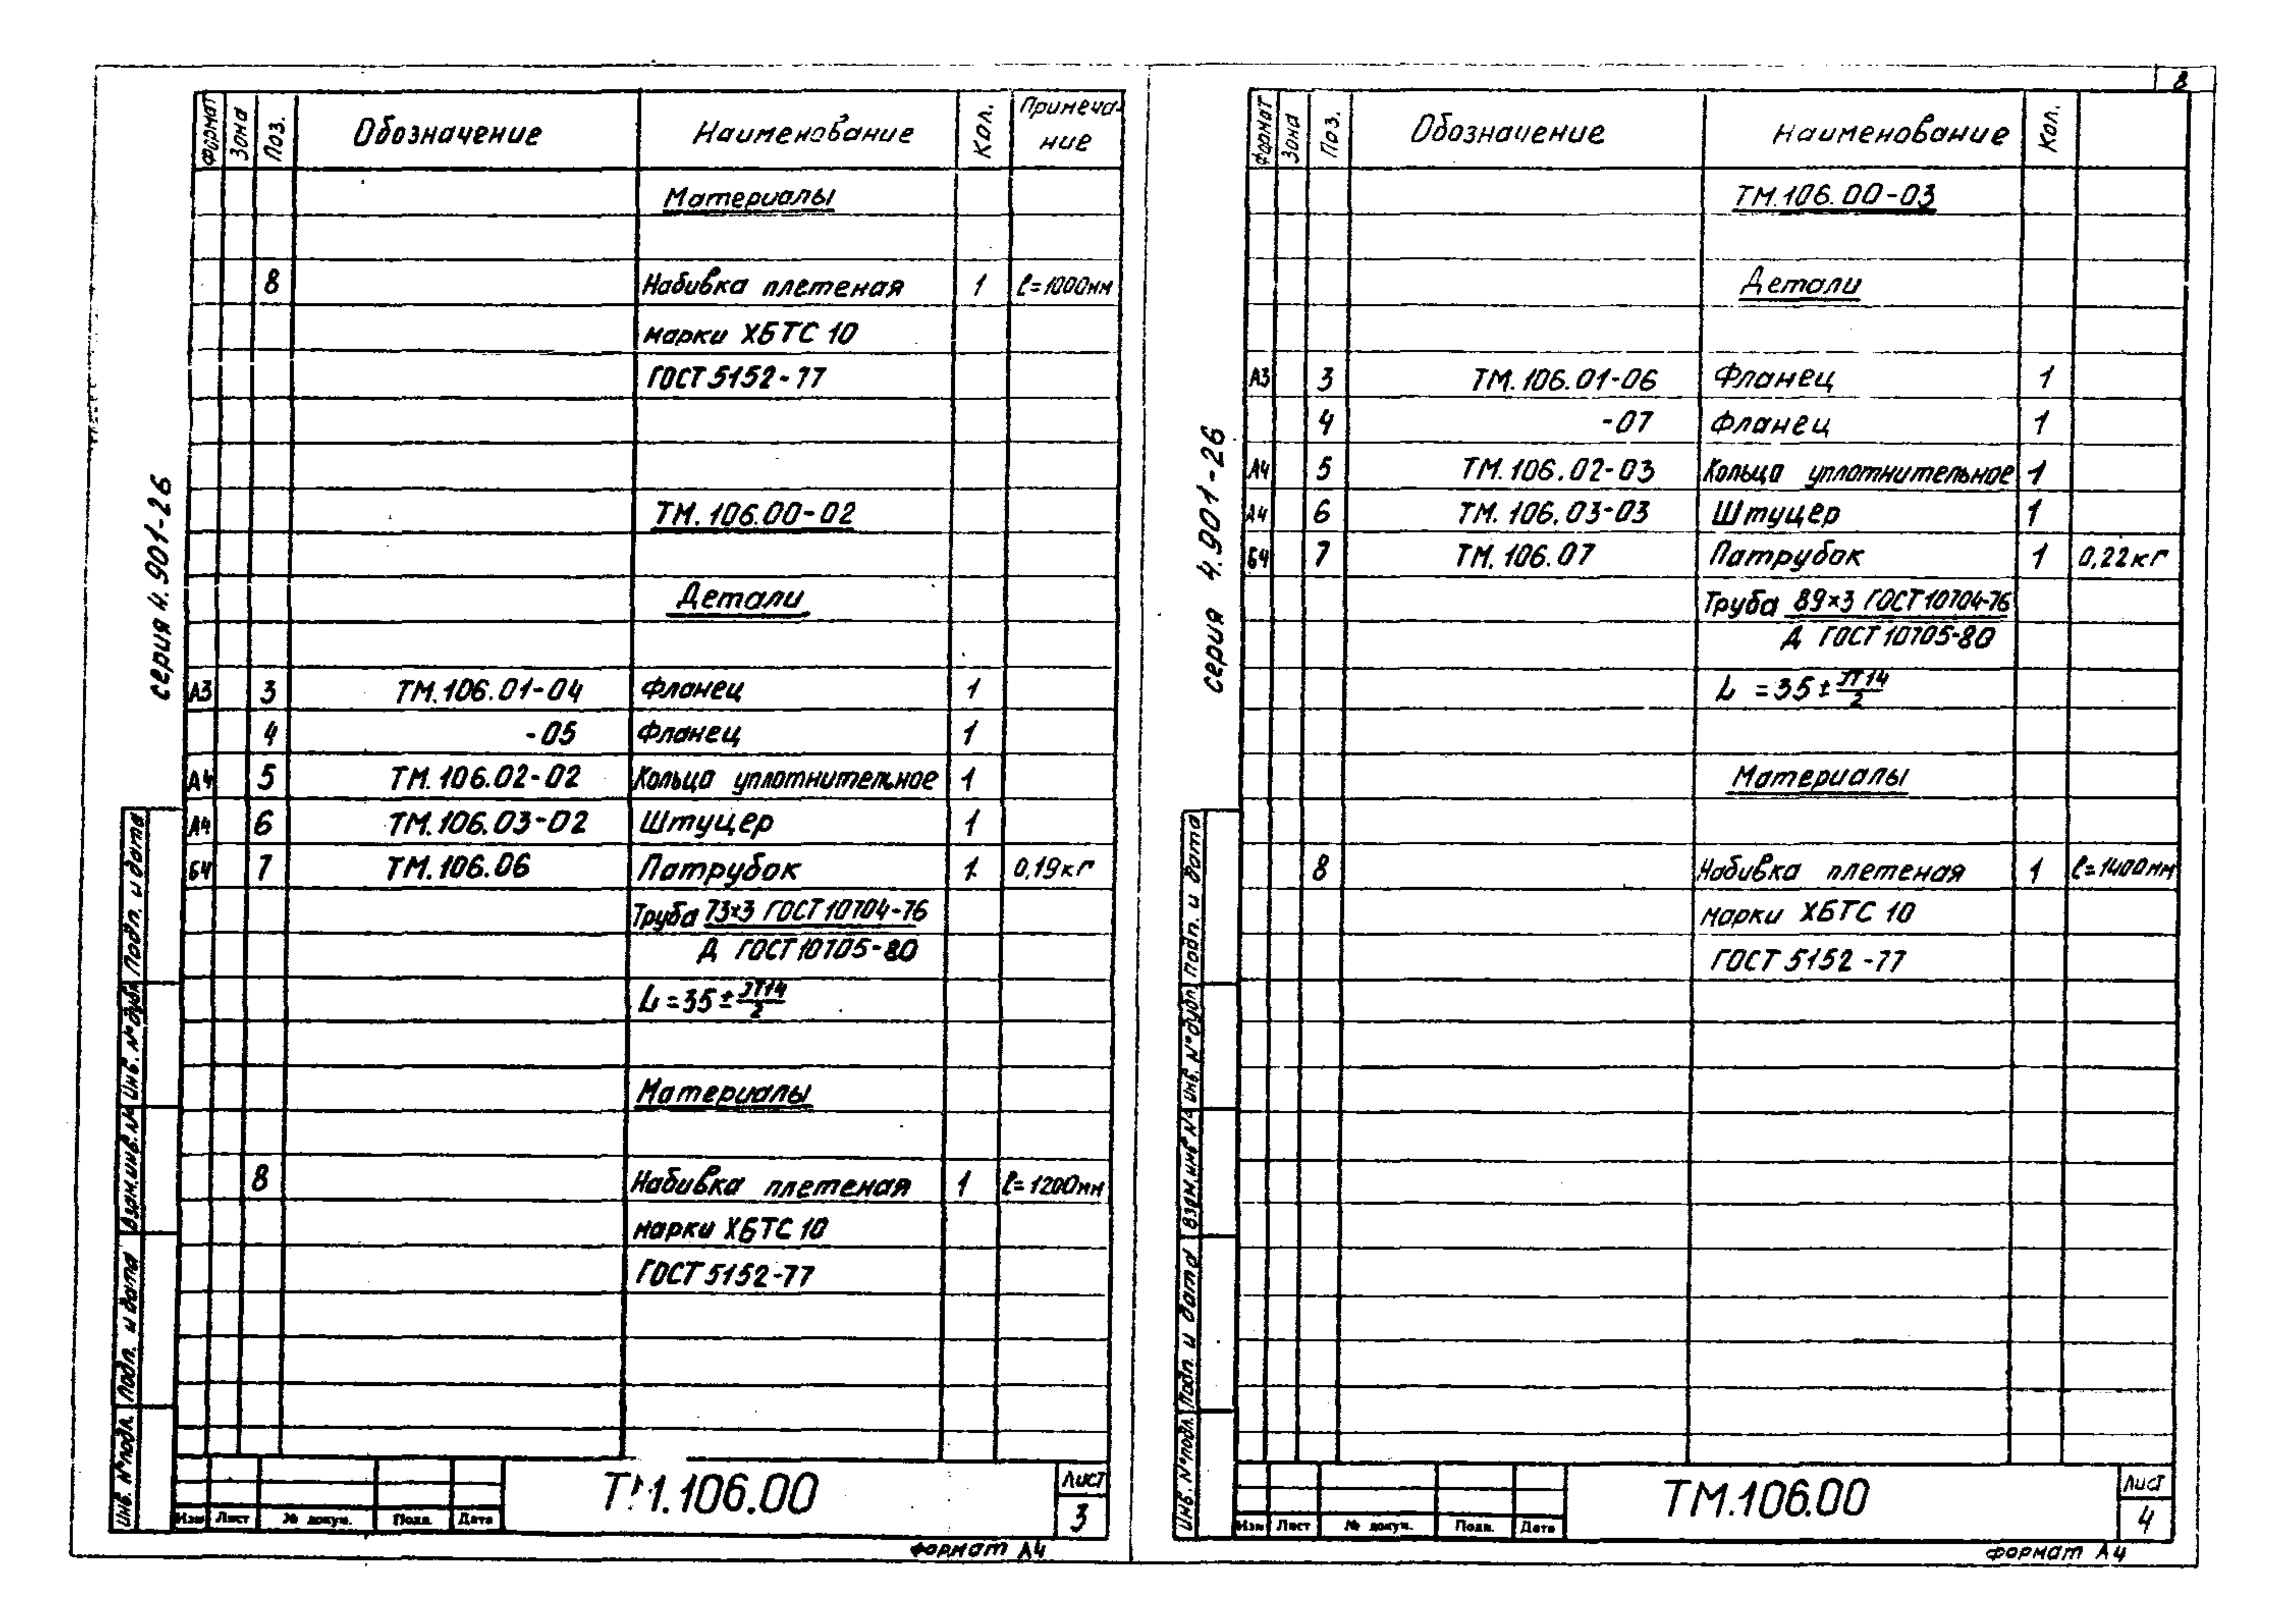 8
Формат Зона Поз. Обозначение Наименование Кол. Примеча-
ние
Материалы
8 Набивка плетеная 1 ℓ=1000мм
марки ХБТС 10
ГОСТ 5152-77
ТМ.106.00-02
Детали
А3 3 ТМ.106.01-04 Фланец 1
4 -05 Фланец 1
А4 5 ТМ.106.02-02 Кольцо уплотнительное 1
А4 6 ТМ.106.03-02 Штуцер 1
Б4 7 ТМ.106.06 Патрубок 1 0,19кг
Труба 73×3 ГОСТ 10704-76
Д ГОСТ 10705-80
L=35±JT14
2
Материалы
8 Набивка плетеная 1 ℓ=1200мм
марки ХБТС 10
ГОСТ 5152-77
серия 4.901-26
Подп. и дата
Инв. № дубл
Взам.инв.№
Подп. и дата
Инв. № подл.
Изм Лист № докум. Подп. Дата
ТМ.106.00
Лист
3
формат А4
Формат Зона Поз. Обозначение Наименование Кол.
ТМ.106.00-03
Детали
А3 3 ТМ.106.01-06 Фланец 1
4 -07 Фланец 1
А4 5 ТМ.106.02-03 Кольцо уплотнительное 1
А4 6 ТМ.106.03-03 Штуцер 1
Б4 7 ТМ.106.07 Патрубок 1 0,22кг
Труба 89×3 ГОСТ 10704-76
Д ГОСТ 10705-80
L =35±JT14
2
Материалы
8 Набивка плетеная 1 ℓ=1400мм
марки ХБТС 10
ГОСТ 5152-77
серия 4.901-26
Подп. и дата
Инв. № дубл
Взам.инв №
Подп. и дата
Инв. № подл.
Изм Лист № докум. Подп. Дата
ТМ.106.00
Лист
4
формат А4